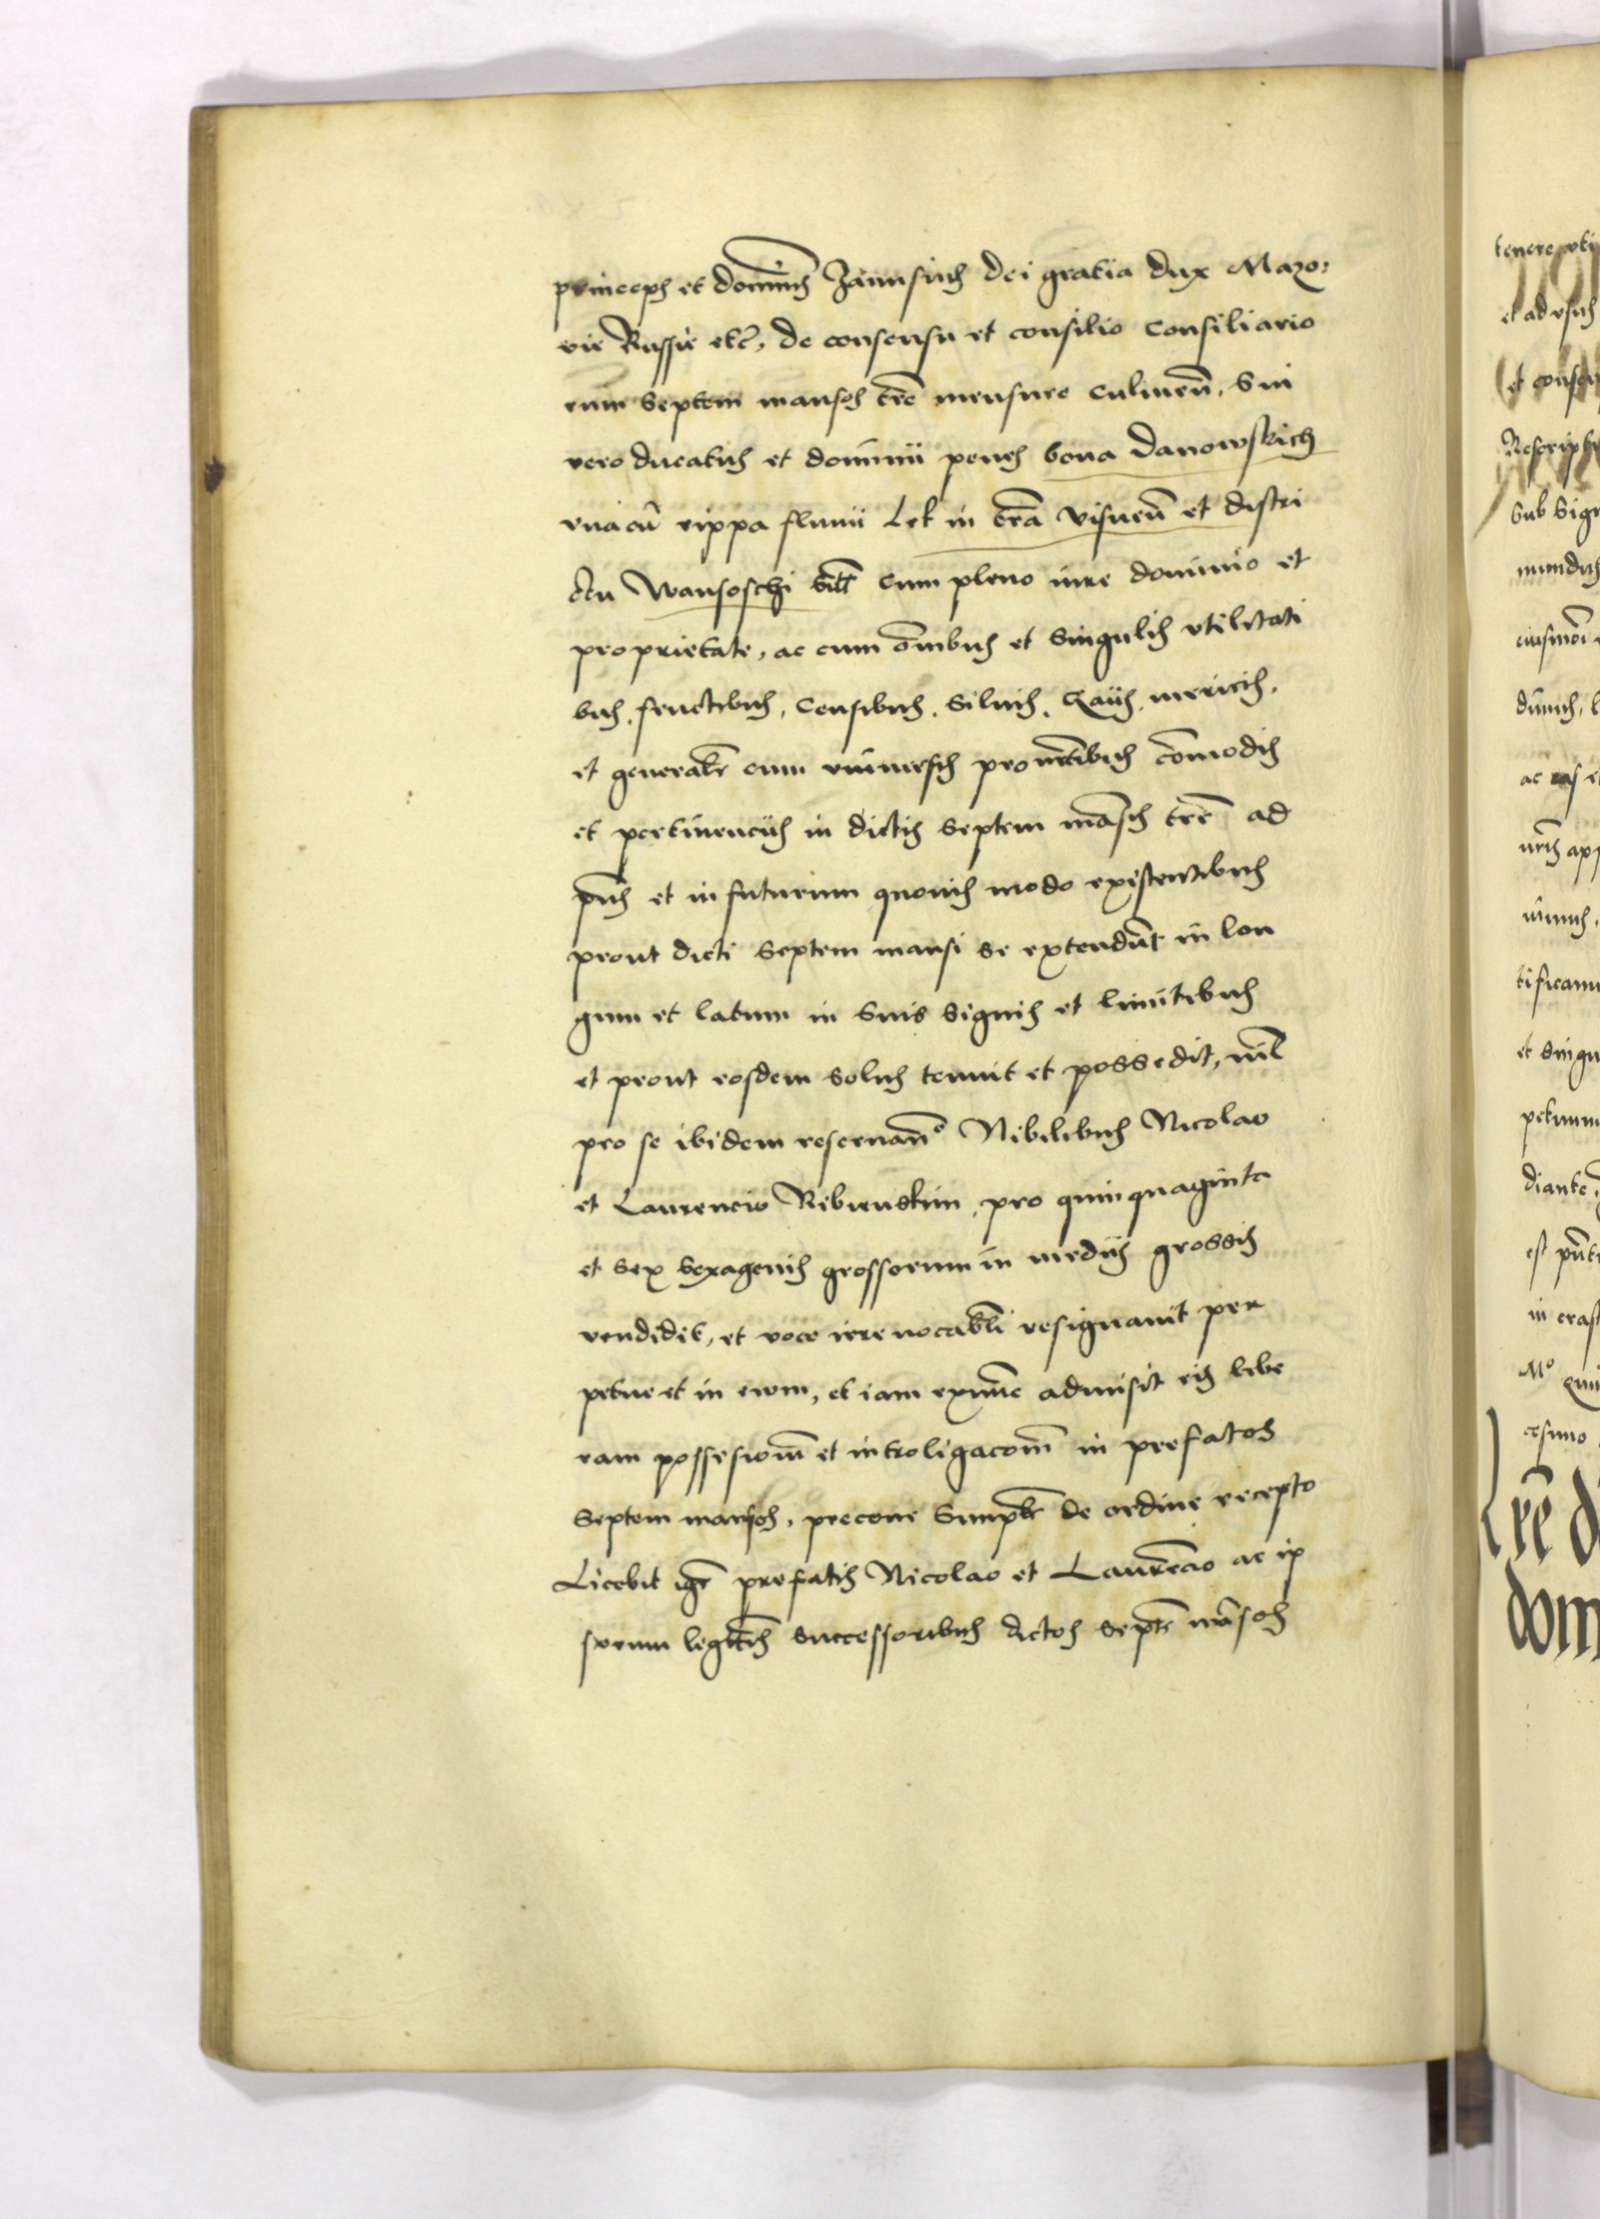 princeps et dominus Janusius dei gratia dux Mazo:
vie Russie etc, de consensu et consilio Consiliario
rum Septem mansos tre mensure culmen, Sui
vero ducatus et dominii penes bona Danowskich
una cu rippa fluvii Lek in tra visnen et distri
ctu Wansoschi sitt cum pleno iure dominio et
proprietate, ac cum omibus et Singulis utilitati
bus, fructibus, Censibus, Siluis, Gaiis, mericis,
et generalr cum universis proventibus comodis
et pertinenciis in dictis Septem masis tre ad
pns et in futurum quovis modo existentibus
prout dicti Septem mansi se extendut in lon
gum et latum in Suis Signis et limitibus
et prout eosdem solus tenuit et possedit, nil
pro se ibidem reservan° Nibilibus Nicolao
et Laurencio Ribienskim, pro quinquaginta
et Sex Sexagenis grossorum in mediis grossis
vendidit, et voce irrevocabli resignavit per
petue et in evum, et iam exnunc admisit eis libe
ram possesionem et intròligacom in prefatos
Septem mansos, precone Simplr de ordine recepto
Licebit igr prefatis Nicolao et Laurecio ac ip
sorum legitis successoribus dictos Septe masos
tenere uti
et ad usus
et conser
Rescript
Sub Sig
ac eas et
tificam
et Singu
in cras